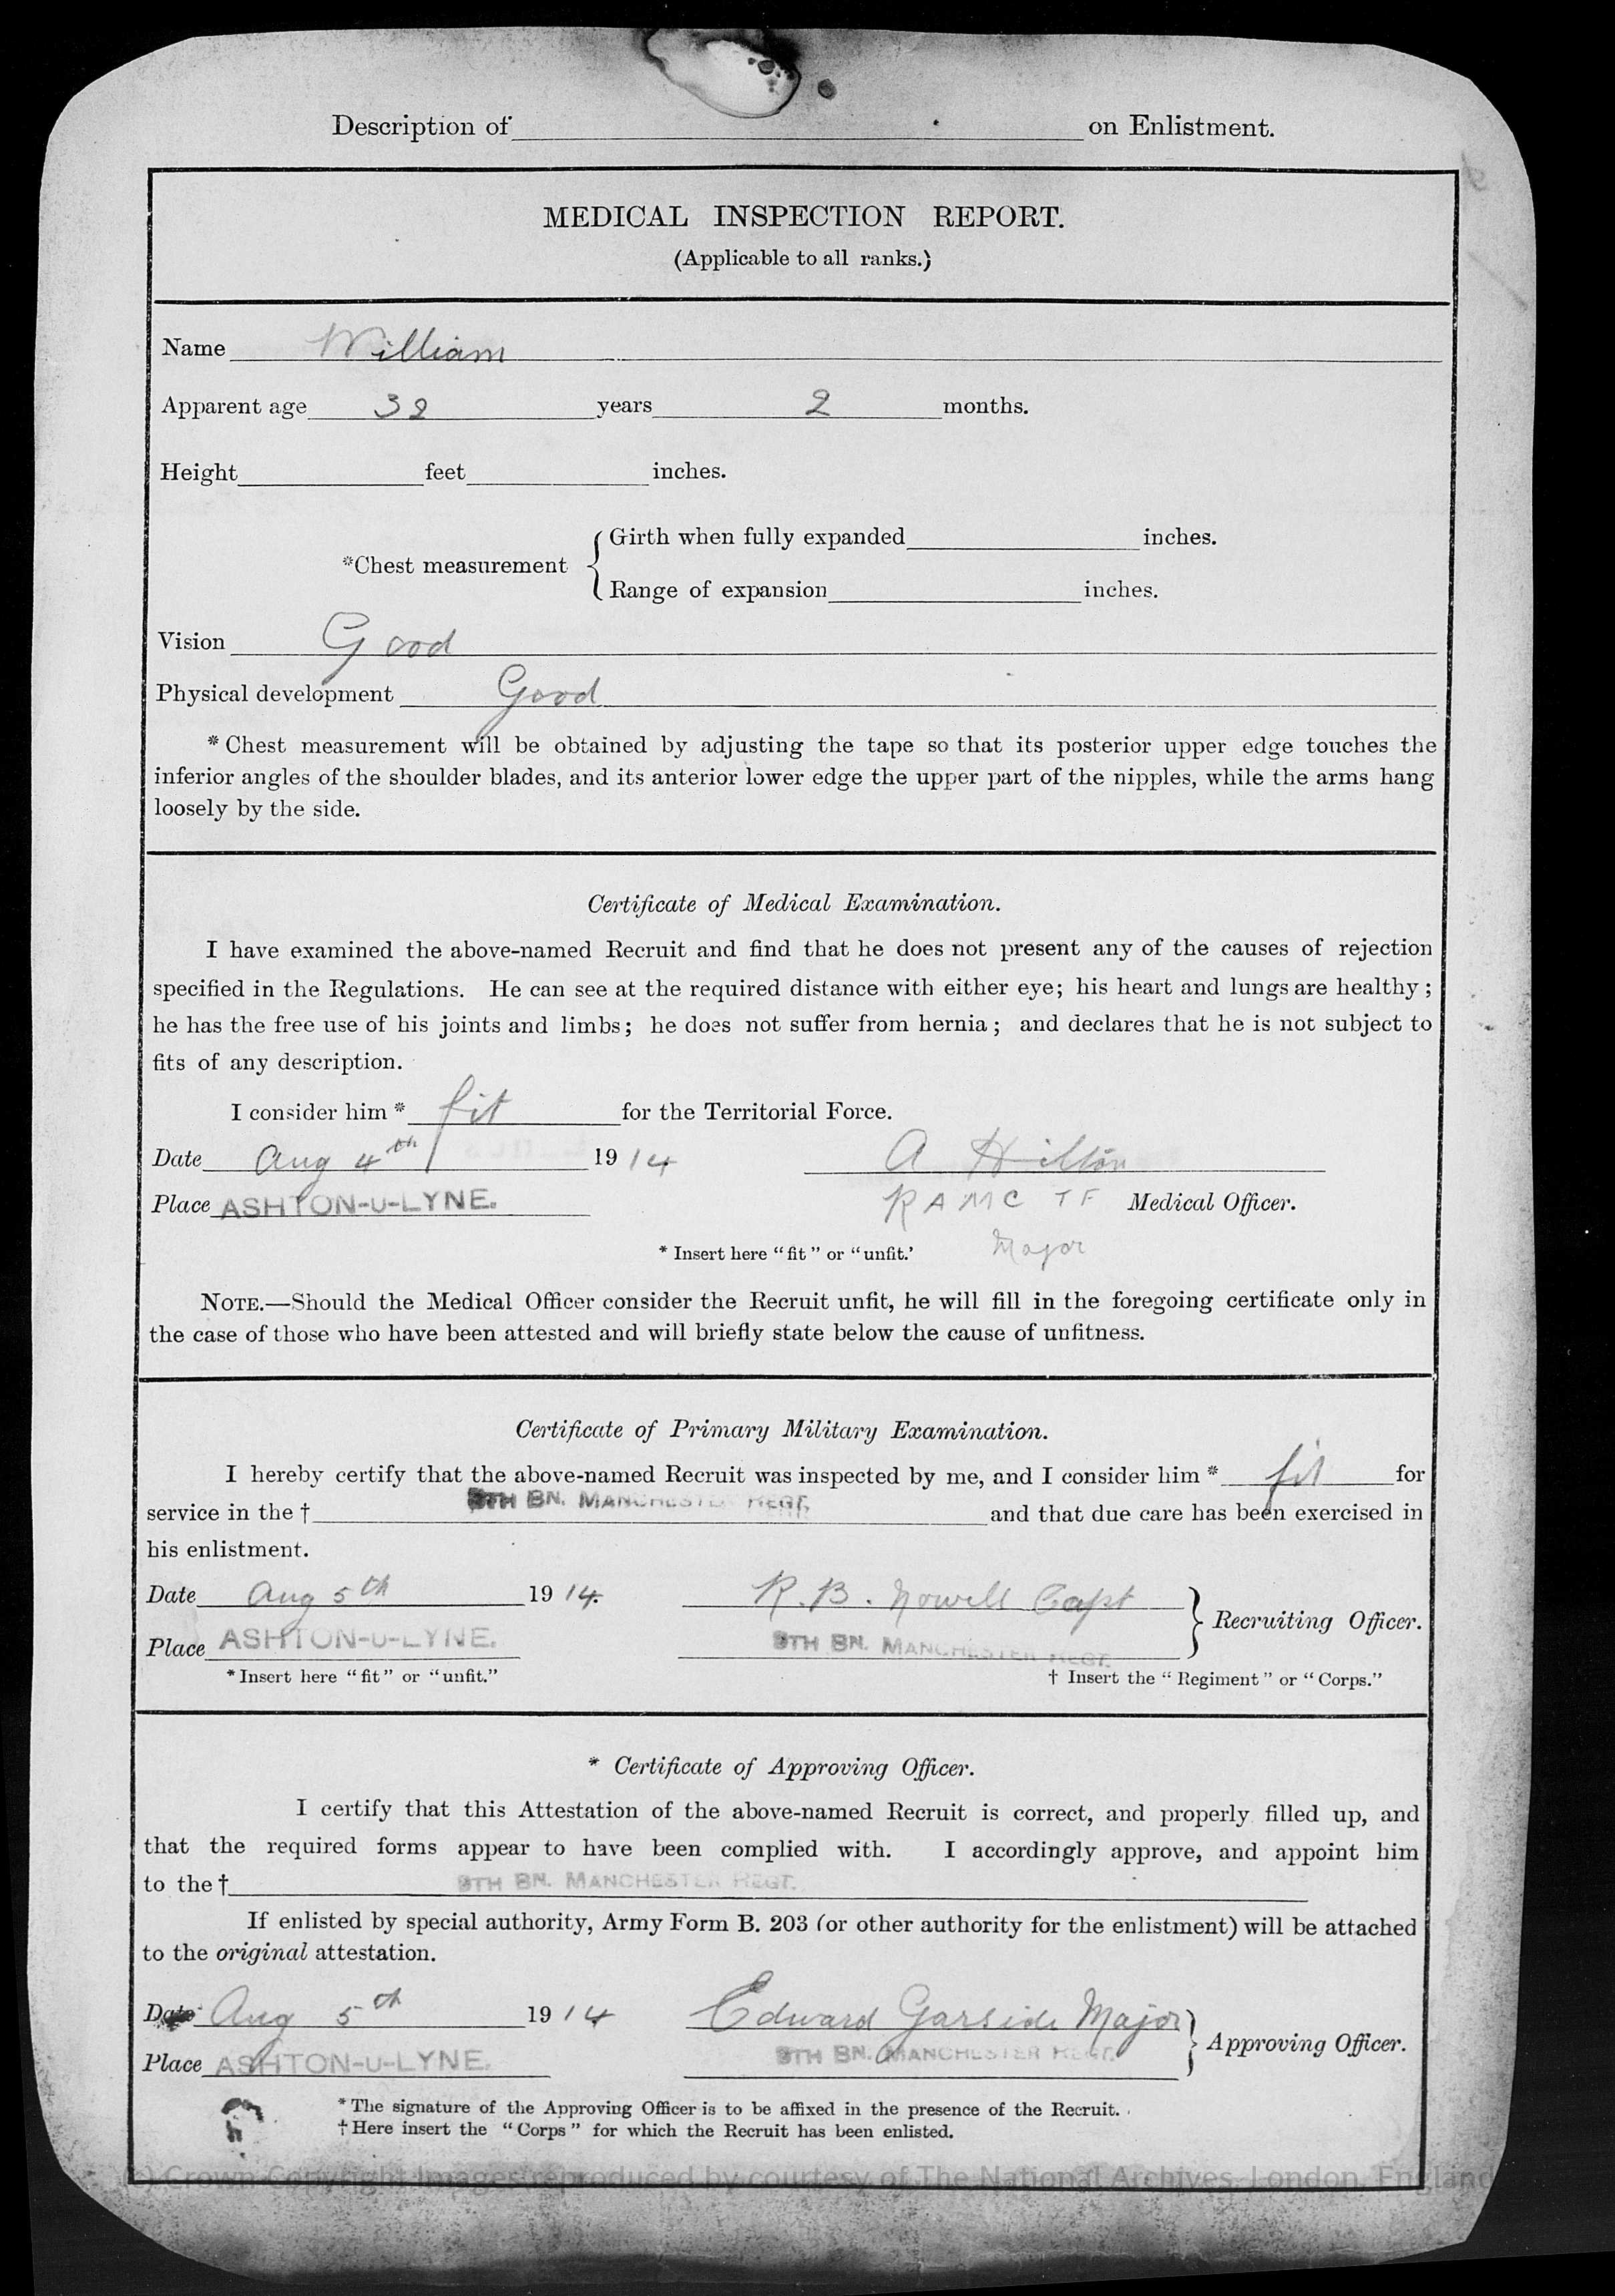 Description of on Enlistment.
MEDICAL INSPECTION REPORT.
(Applicable to all ranks.)
Name William
Apparent age 32 years 2 months.
Height feet inches.
Girth when fully expanded inches.
*Chest measurement
Range of expansion inches.
Vision Good
Physical development Good
* Chest measurement will be obtained by adjusting the tape so that its posterior upper edge touches the
inferior angles of the shoulder blades, and its anterior lower edge the upper part of the nipples, while the arms hang
loosely by the side.
Certificate of Medical Examination.
I have examined the above-named Recruit and find that he does not present any of the causes of rejection
specified in the Regulations. He can see at the required distance with either eye; his heart and lungs are healthy;
he has the free use of his joints and limbs; he does not suffer from hernia; and declares that he is not subject to
fits of any description.
I consider him * fit for the Territorial Force.
Date Aug 4th 1914 A Hilton
Place ASHTON-U-LYNE. RAMC TF Medical Officer.
* Insert here "fit" or "unfit.' Major
NOTE.—Should the Medical Officer consider the Recruit unfit, he will fill in the foregoing certificate only in
the case of those who have been attested and will briefly state below the cause of unfitness.
Certificate of Primary Military Examination.
I hereby certify that the above-named Recruit was inspected by me, and I consider him * fit for
service in the † 9TH BN. MANCHESTER REGT. and that due care has been exercised in
his enlistment.
Date Aug 5th 1914. R. B. Nowell Capt
Recruiting Officer.
Place ASHTON-U-LYNE. 9TH BN. MANCHESTER REGT.
* Insert here "fit" or "unfit." † Insert the "Regiment" or "Corps."
* Certificate of Approving Officer.
I certify that this Attestation of the above-named Recruit is correct, and properly filled up, and
that the required forms appear to have been complied with. I accordingly approve, and appoint him
to the † 9TH BN. MANCHESTER REGT.
If enlisted by special authority, Army Form B. 203 (or other authority for the enlistment) will be attached
to the original attestation.
Date Aug 5th 1914 Edward Garside Major
Approving Officer.
Place ASHTON-U-LYNE. 9TH BN. MANCHESTER REGT.
* The signature of the Approving Officer is to be affixed in the presence of the Recruit.
† Here insert the "Corps" for which the Recruit has been enlisted.
(c) Crown Copyright Images reproduced by courtesy of The National Archives, London, England